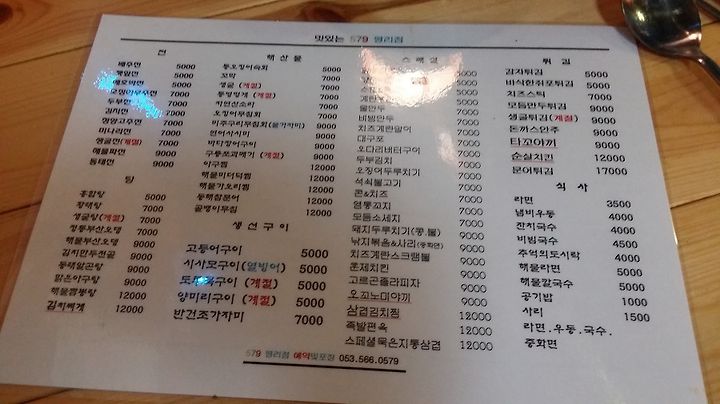 맛있는 579 퀼리점
전
배추전 5000
깻잎전 5000
애호박전 5000
오징어부추전 7000
두부전 7000
김치전 7000
청양고추전 7000
미나리전 7000
생굴전(계절) 9000
해물파전 9000
동태전 9000
탕
홍합탕 5000
황태탕 7000
생굴탕(계절) 7000
정통부산오뎅 7000
해물부산오뎅 9000
김치만두전골 9000
동태알곤탕 9000
맑은아구탕 9000
해물짬뽕탕 12000
김치찌개 12000
해산물
통오징어숙회 5000
꼬막 7000
생굴(계절) 7000
통영멍게(계절) 7000
자연산소라 7000
오징어무침회 7000
아주구리무침회(물가자미) 9000
연어사시미 9000
바다장어구이 9000
구룡포과메기(계절) 9000
아구찜 12000
해물미더덕찜 12000
해물가오리찜 12000
동해참문어 12000
골뱅이무침 12000
생선구이
고등어구이 5000
시사모구이(열빙어) 5000
구이(계절) 5000
양미리구이(계절) 5000
반건조가자미 7000
5000
(계절) 5000
5000
계란 5000
물만두 5000
비빔만두 7000
치즈계란말이 7000
대구포 7000
오다리버터구이 7000
두부김치 7000
오징어두루치기 7000
석쇠불고기 7000
콘&치즈 7000
염통꼬지 7000
모듬소세지 7000
돼지두루치기(콩.불) 9000
낙지볶음&사리(중화면) 9000
치즈계란스크램블 9000
훈제치킨 9000
고르곤졸라피자 9000
오꼬노미야끼 9000
삼겹김치찜 12000
족발편육 12000
스페셜묵은지통삼겹 12000
튀김
감자튀김 5000
바삭한쥐포튀김 5000
치즈스틱 7000
모듬만두튀김 9000
생굴튀김(계절) 9000
돈까스안주 9000
타꼬야끼 9000
순살치킨 12000
문어튀김 17000
식사
라면 3500
냄비우동 4000
잔치국수 4000
비빔국수 4500
추억의도시락 4000
해물라면 5000
해물칼국수 5000
공기밥 1000
사리 1500
라면.우동.국수.
중화면
579 퀼리점 예약및포장 053.566.0579